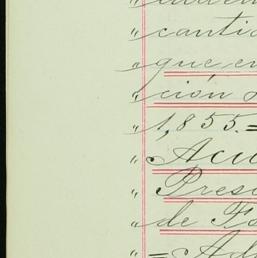 "
" cantid
" que en
" ción
" 1,855.=
" Acu
" Presu
" de Fo
" = Ad